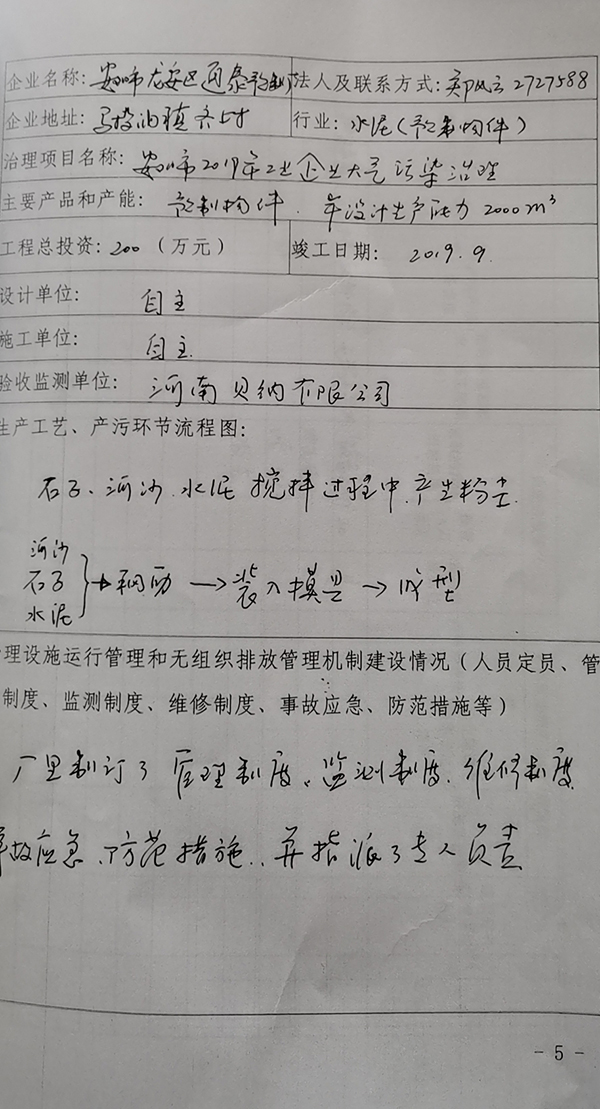 企业名称: 安阳市龙安区通泰预制厂 法人及联系方式: 郑风云 2727588
企业地址: 马投涧镇齐村 行业: 水泥(预制构件)
治理项目名称: 安阳市2019年工业企业大气污染治理
主要产品和产能: 预制构件. 年设计生产能力 2000m³
工程总投资: 200 (万元) 竣工日期: 2019.9.
设计单位: 自主
施工单位: 自主
验收监测单位: 河南贝纳有限公司
生产工艺、产污环节流程图:
石子、河沙.水泥 搅拌过程中.产生粉尘.
河沙
石子 → → 装入模具 → 成型
水泥
理设施运行管理和无组织排放管理机制建设情况（人员定员、管
制度、监测制度、维修制度、事故应急、防范措施等）
厂里制订了管理制度、监测制度.维修制度
事故应急、防范措施.并指派了专人负责
- 5 -